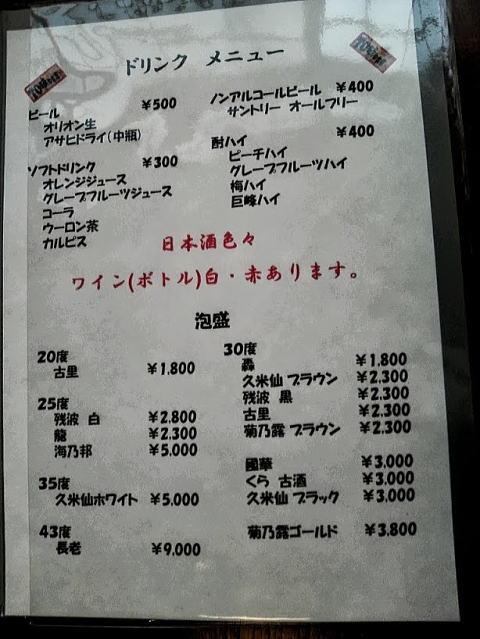 ドリンク メニュー
ビール ¥500
オリオン生
アサヒドライ(中瓶)
ソフトドリンク ¥300
オレンジジュース
グレープフルーツジュース
コーラ
ウーロン茶
カルピス
ノンアルコールビール ¥400
サントリー オールフリー
酎ハイ ¥400
ピーチハイ
グレープフルーツハイ
梅ハイ
巨峰ハイ
日本酒色々
ワイン(ボトル)白・赤あります。
泡盛
20度
古里 ¥1.800
25度
残波 白 ¥2.800
龍 ¥2.300
海乃邦 ¥5.000
35度
久米仙ホワイト ¥5.000
43度
長老 ¥9.000
30度
轟 ¥1.800
久米仙 ブラウン ¥2.300
残波 黒 ¥2.300
古里 ¥2.300
菊乃露 ブラウン ¥2.300
國華 ¥3.000
くら 古酒 ¥3.000
久米仙 ブラック ¥3.000
菊乃露ゴールド ¥3.800